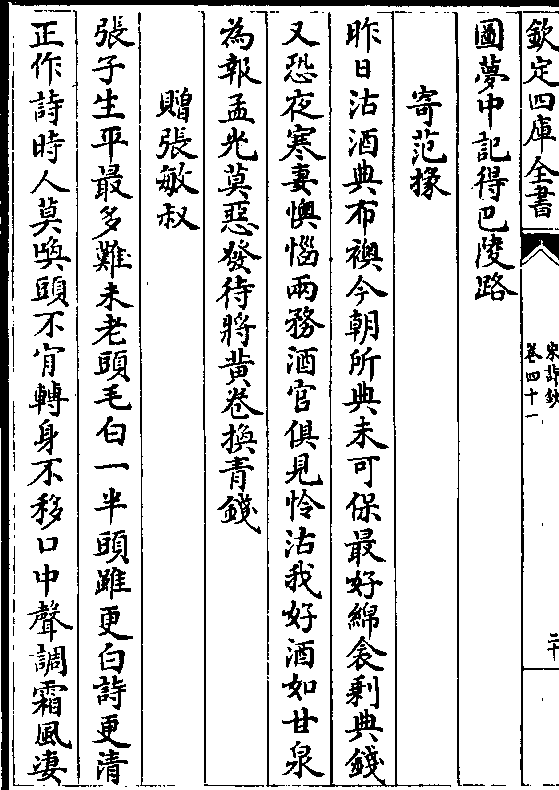 欽定四庫全書
宋詩鈔
卷四十一
二十
圖夢中記得巴陵路
寄范掾
昨日沽酒典布襖今朝所典未可保最好綿衾剩典錢
又恐夜寒妻懊惱兩務酒官俱見怜沽我好酒如甘泉
為報孟光莫惡發待將黄卷換青錢
贈張敏叔
張子生平最多難未老頭毛白一半頭雖更白詩更清
正作詩時人莫喚頭不肎轉身不移口中聲調霜風凄